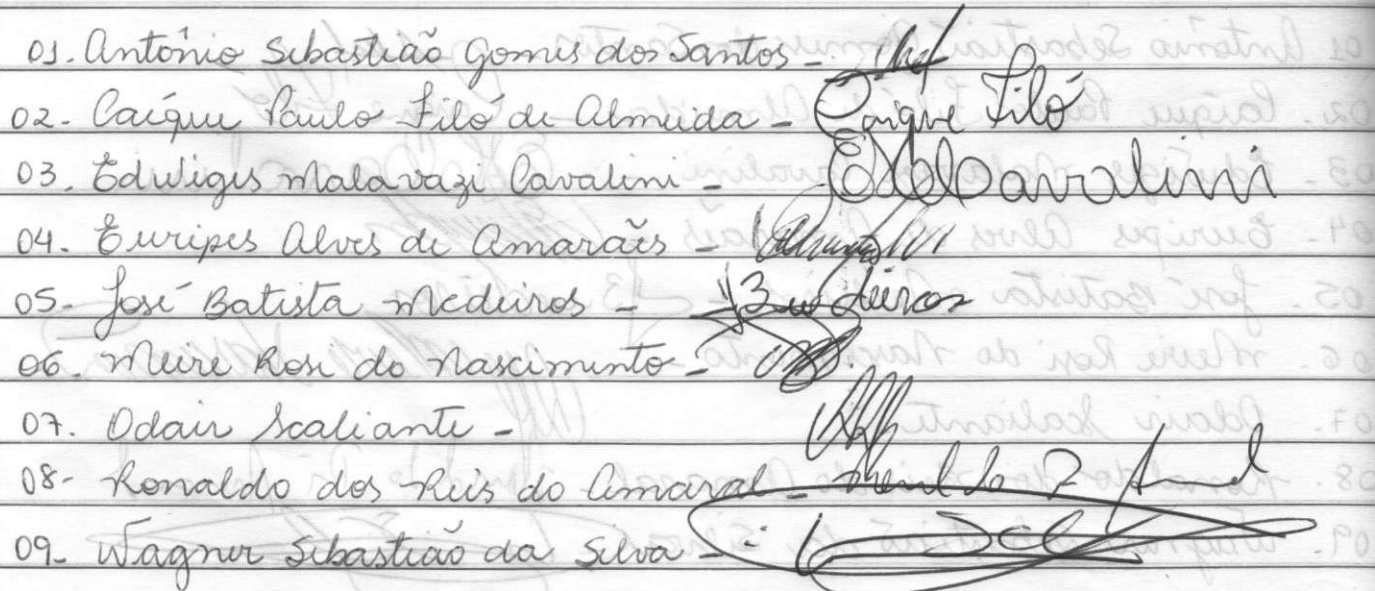 01. Antônio Sebastião Gomes dos Santos -
02- Caíque Paulo Filó de Almeida - Caíque Filó
03. Edwiges Malavazi Cavalini - EMCavalini
04- Euripes Alves de Amarães -
05- José Batista Medeiros - JBMedeiros
06. Meire Rose do Nascimento -
07. Odair Scaliante -
08- Ronaldo dos Reis do Amaral -
09- Wagner Sebastião da Silva -